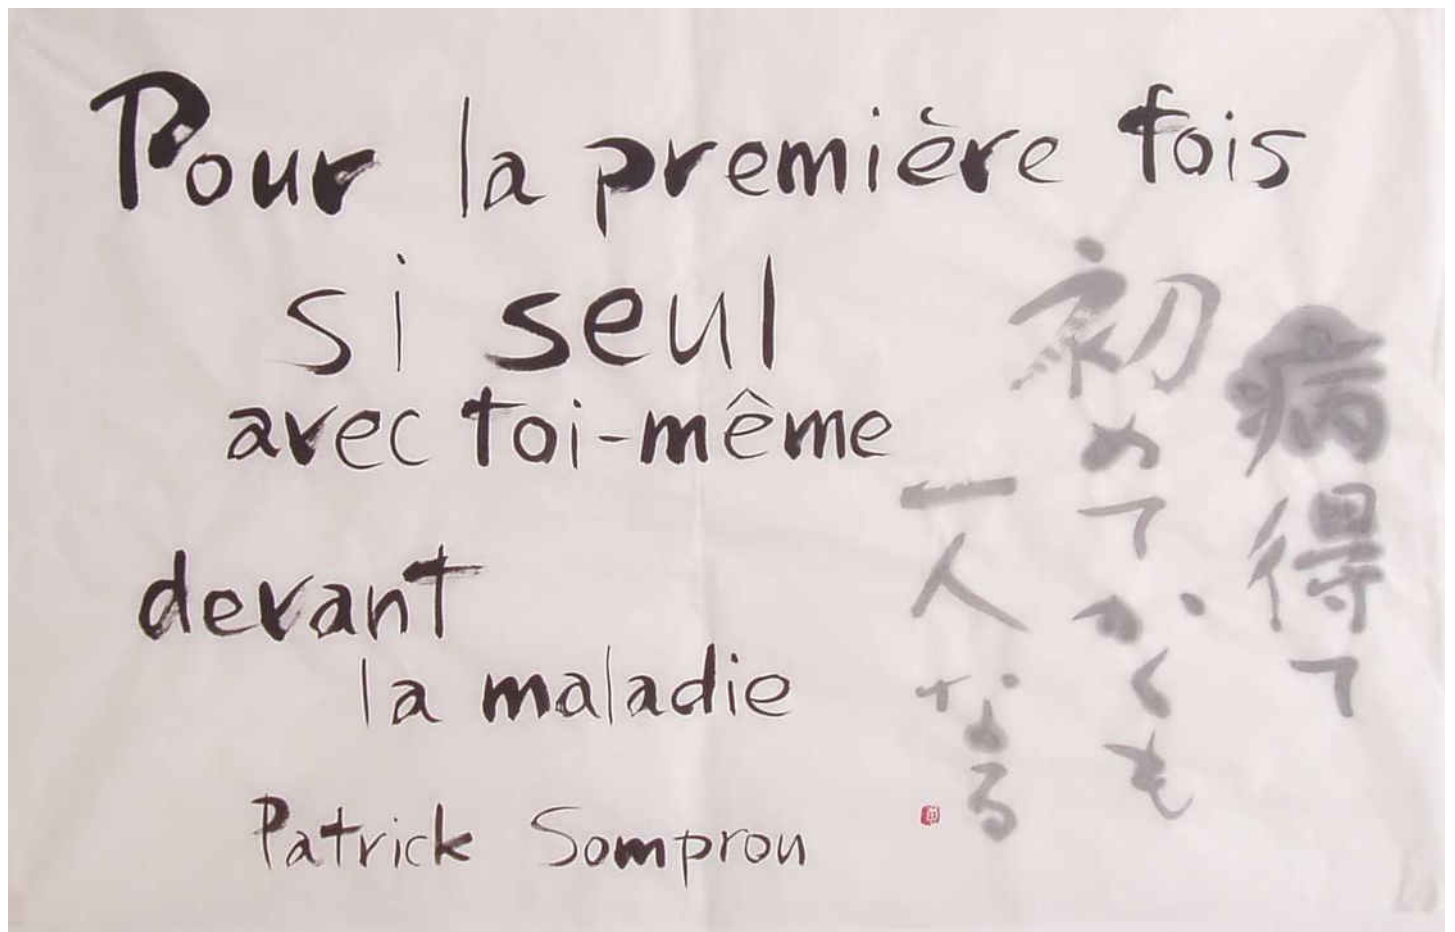 Pour la première fois
si seul
avec toi-même
devant
la maladie
Patrick Somprou
病得て
初めてかくも
一人なる